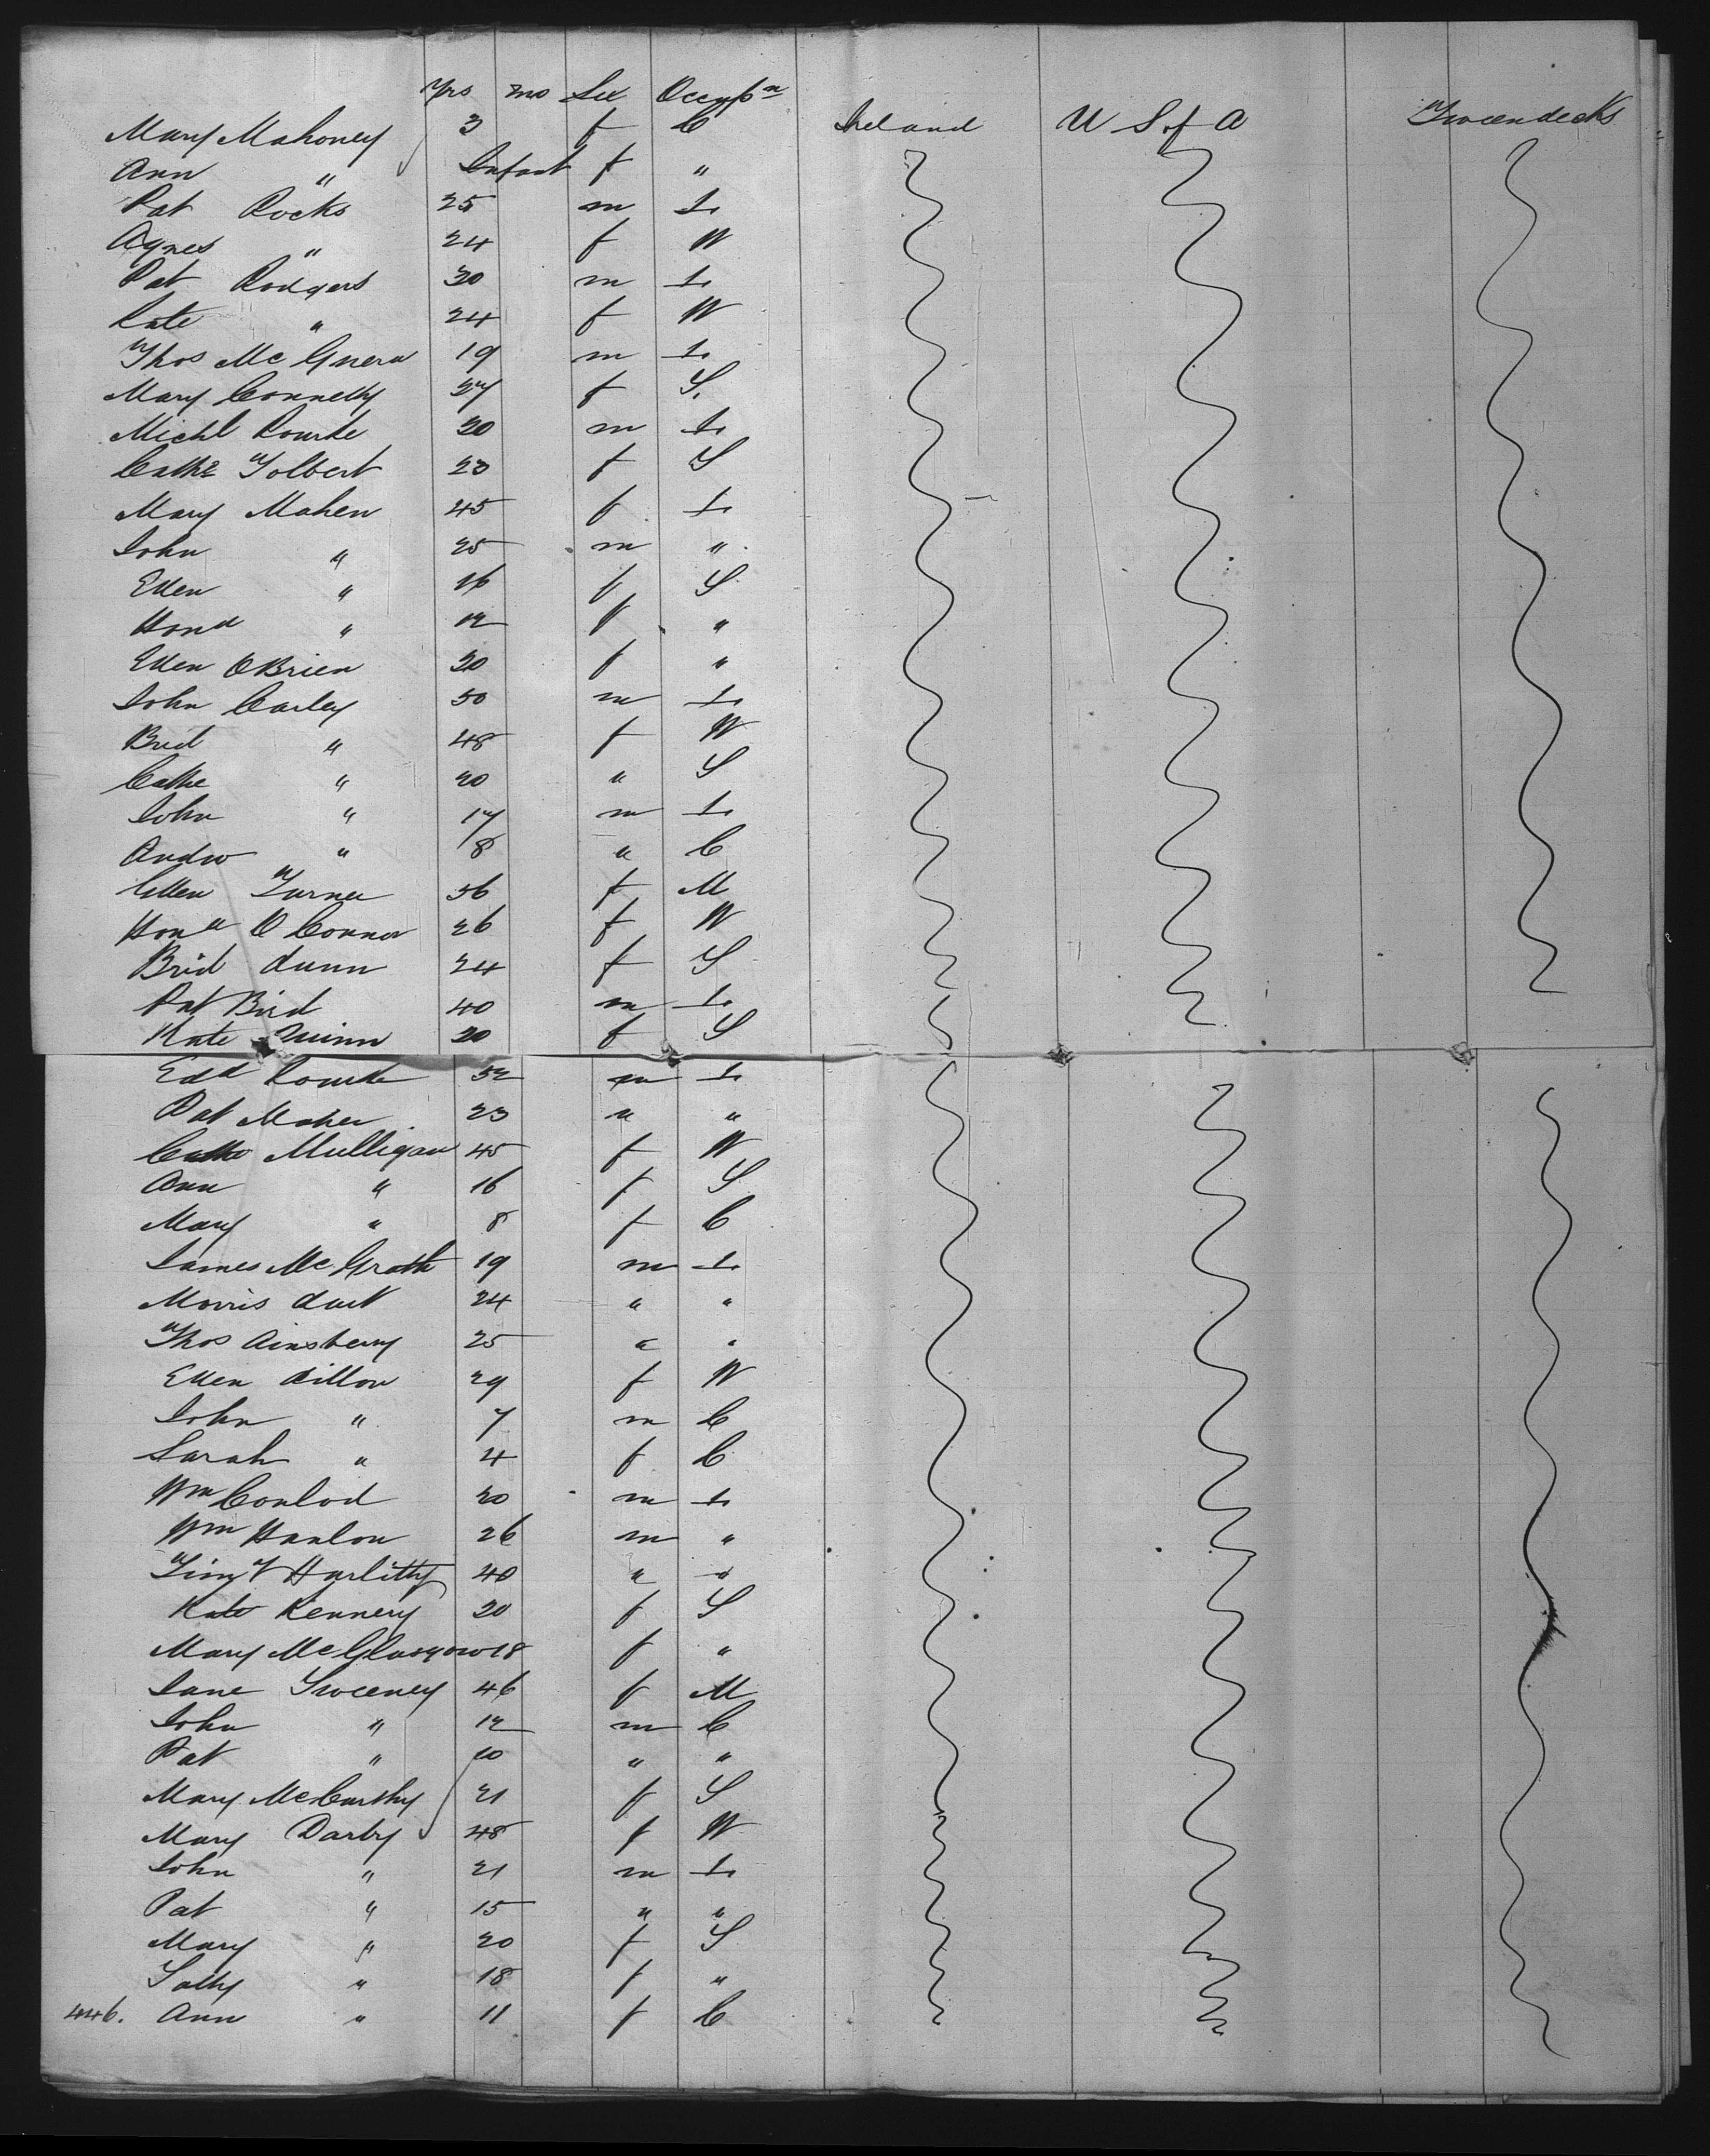 Yrs mo Sex Occupn
Mary Mahoney 3 f C Ireland U S of A Tweendecks
Ann " Infant f "
Pat Rocks 25 m L.
Agnes " 24 f W
Pat Rodgers 30 m L.
Kate " 24 f W
Thos Mc 19 m L.
Mary Connelly 27 f S.
Michl Rourke 20 m L.
Cathe Tolbert 23 f S
Mary Mahen 45 f L.
John " 25 m "
Ellen " 16 f S
Hona " 12 f "
Ellen OBrien 20 f "
John Carley 50 m L.
Brid " 48 f W
Cathe " 20 " S
John " 17 m L.
Andw " 8 " C
Ellen Turner 56 f M
Hona O Connor 26 f W
Brid dunn 24 f S
Pat Bird 40 m L.
Kate Quinn 20 f S
Edd Rourke 52 m L.
Pat Maher 23 " "
Cathe Mulligan 45 f W
Ann " 16 f S
Mary " 8 f C
James McGrath 19 m L.
Morris 24 " "
Thos Ainsberry 25 " "
Ellen dillon 29 f W
John " 7 m C
Sarah " 4 f C
Wm Conlod 20 m L.
Wm Hanlon 26 m "
Timy 40 " "
Kate Kennery 20 f S
Mary McGlasgow 18 f "
Jane Sweeney 46 f M
John " 12 m C
Pat " 10 " "
Mary McCarthy 21 f S
Mary Darby 48 f W
John " 21 m L.
Pat " 15 " "
Mary " 20 f S
Sally " 18 f "
446. Ann " 11 f C